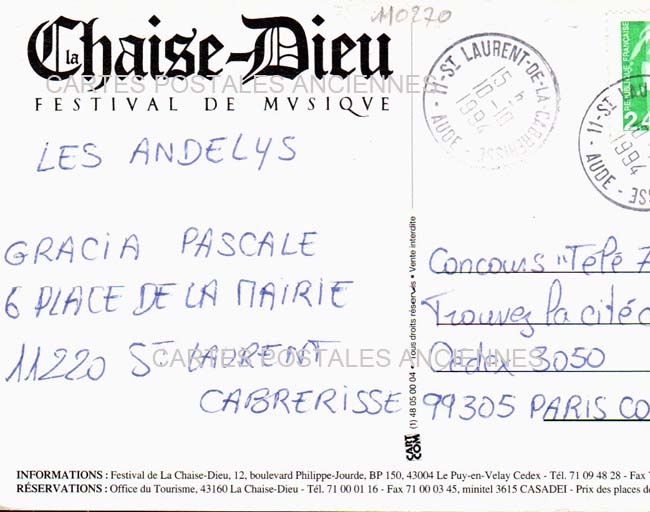 110270
la Chaise-Dieu
CARTES POSTALES ANCIENNES
FESTIVAL DE MVSIQVE
11-ST LAURENT-DE-LA-CABRERISSE
15 H
10-10
1994
AUDE
11-ST LAU
1994
AUDE
SSE
REPUBLIQUE FRANÇAISE
2,4
LES ANDELYS
GRACIA PASCALE
6 PLACE DE LA MAIRIE
11220 ST LAURENT
CABRERISSE
CARTES POSTALES ANCIENNES
CART'COM (1) 48 05 00 04 • Tous droits réservés • Vente interdite
Concours "Télé 7
Trouvez la cité
Cedex 3050
99305 PARIS CO
INFORMATIONS : Festival de La Chaise-Dieu, 12, boulevard Philippe-Jourde, BP 150, 43004 Le Puy-en-Velay Cedex - Tél. 71 09 48 28 - Fax
RÉSERVATIONS : Office du Tourisme, 43160 La Chaise-Dieu - Tél. 71 00 01 16 - Fax 71 00 03 45, minitel 3615 CASADEI - Prix des places de